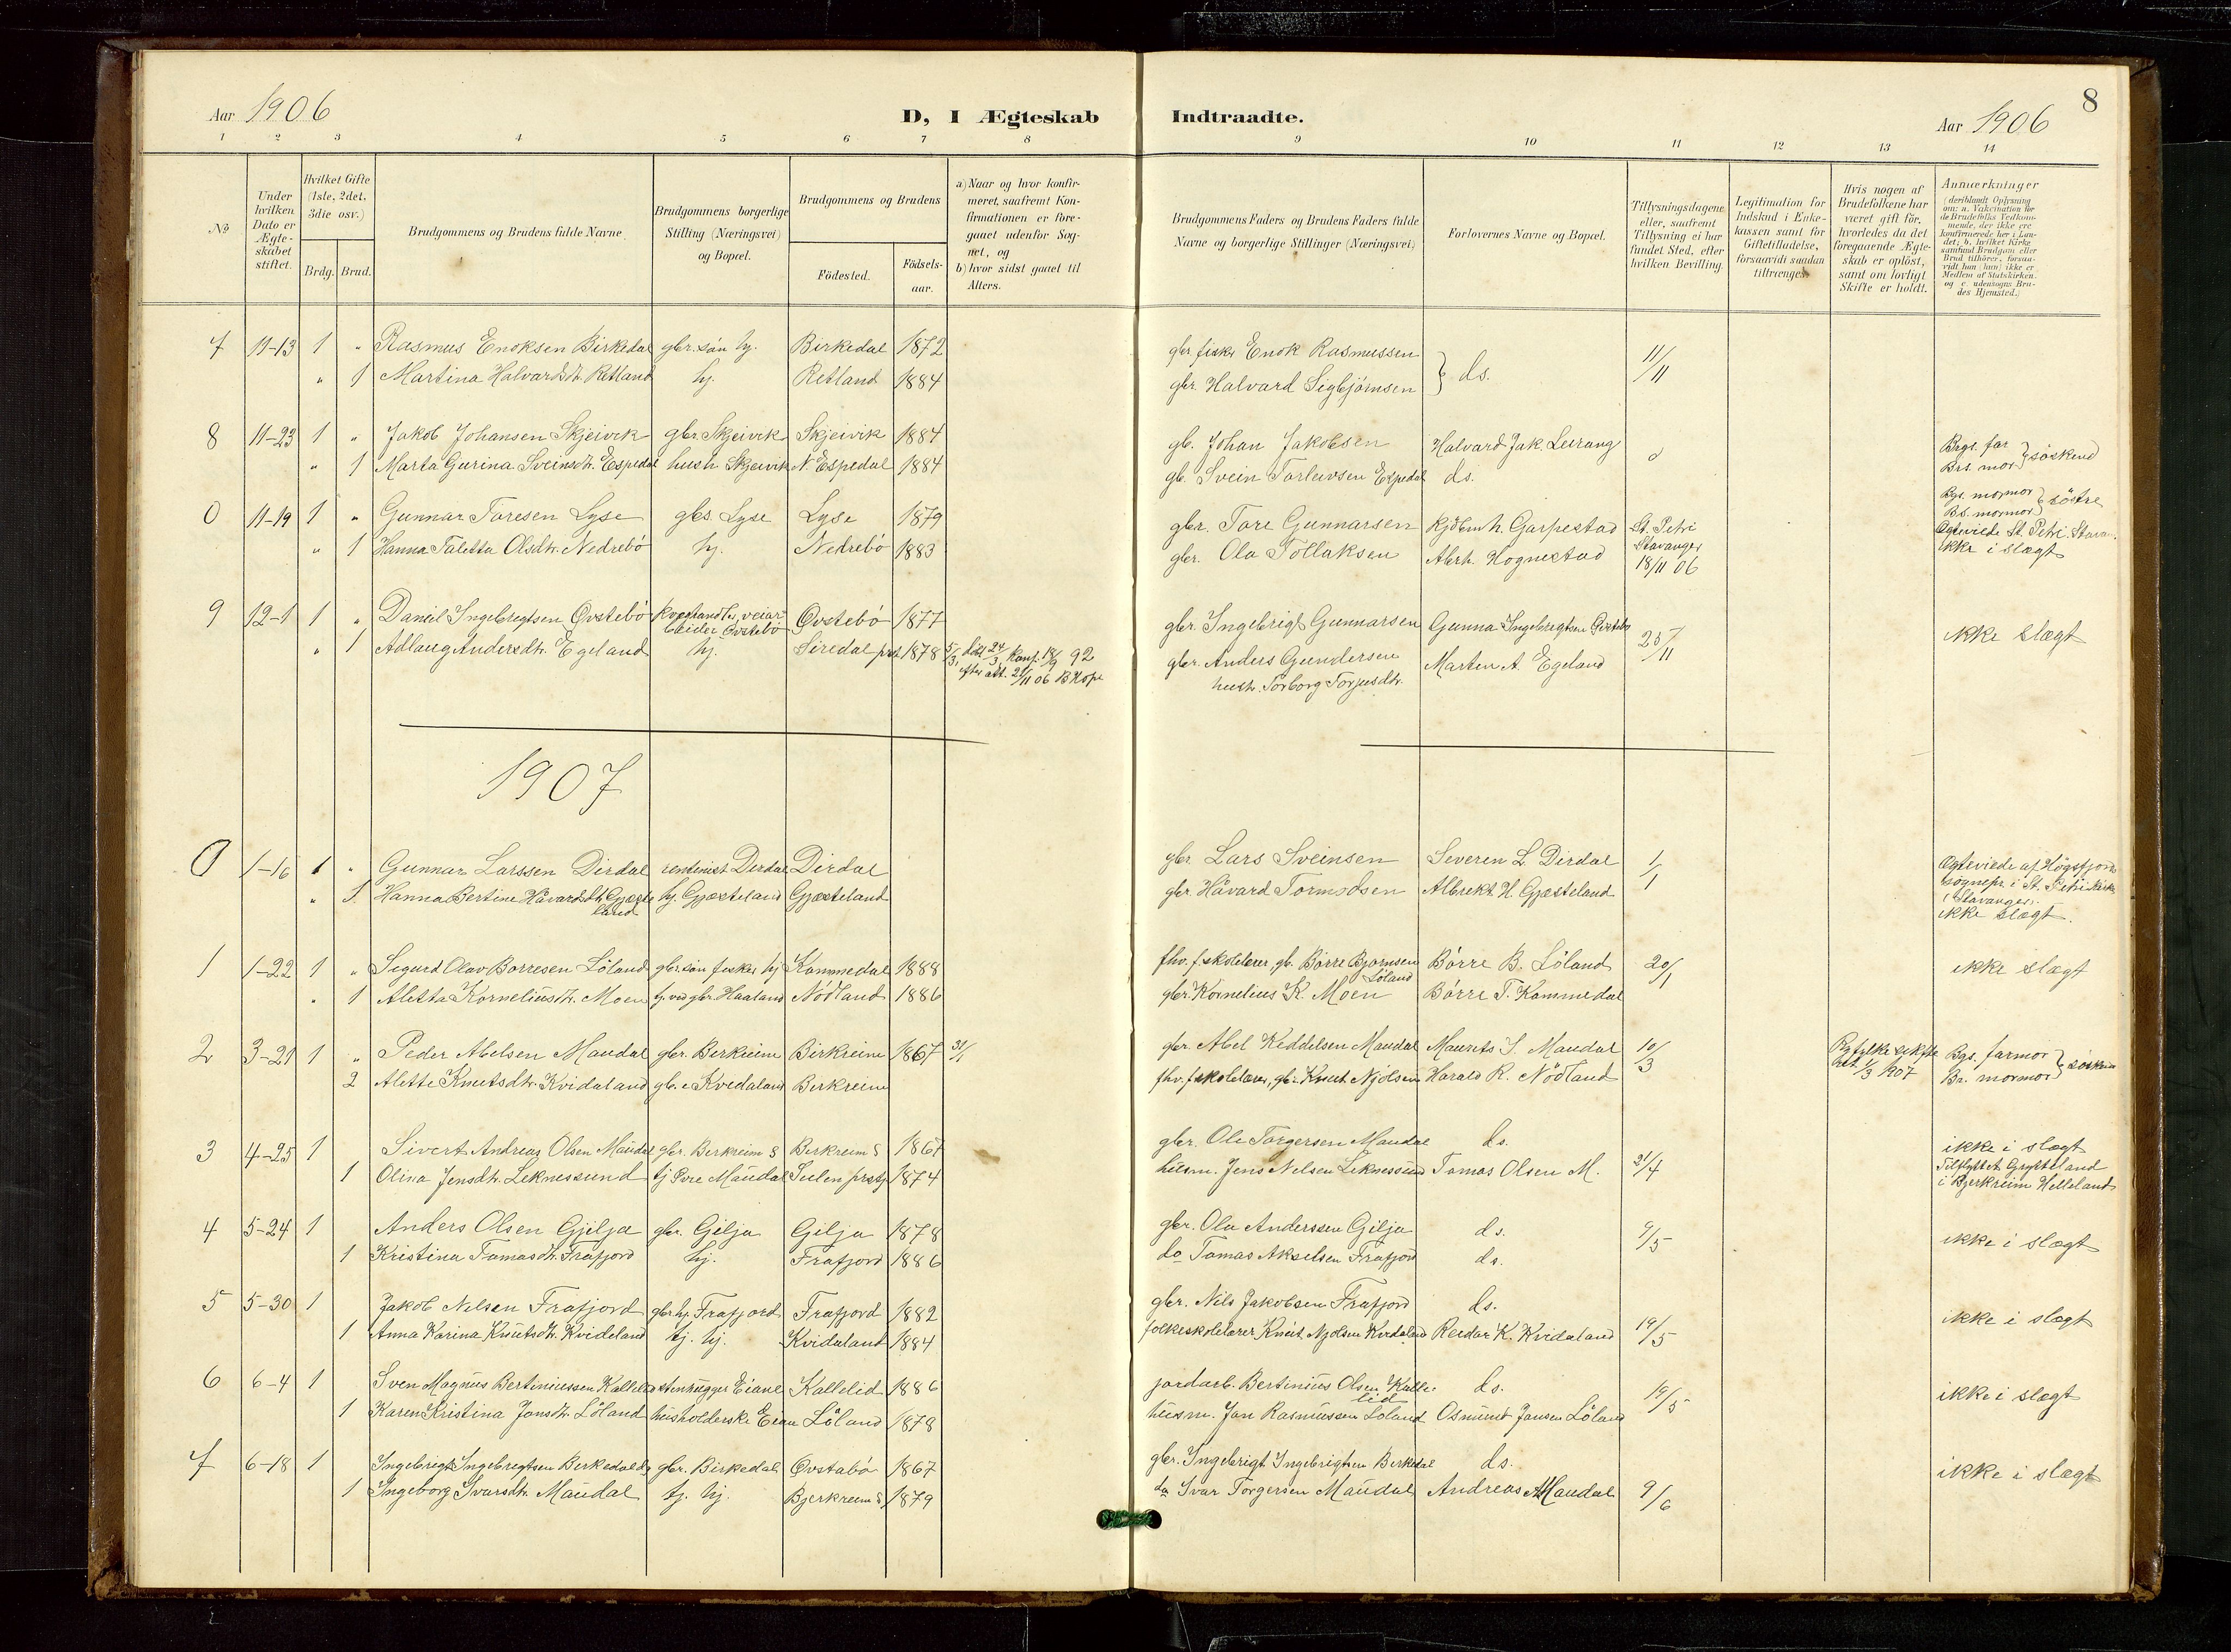 8
Aar 1906
D, I Ægteskab Indtraadte.
Aar 1906
1 2 3 4 5 6 7 8 9 10 11 12 13 14
No
Under hvilken Dato er Ægteskabet stiftet.
Hvilket Gifte (1ste, 2det, 3die osv.)
Brdg. Brud.
Brudgommens og Brudens fulde Navne.
Brudgommens borgerlige Stilling (Næringsvei) og Bopæl.
Brudgommens og Brudens
Födested.
Födsels-aar.
a) Naar og hvor konfirmeret, saafremt Konfirmationen er foregaaet udenfor Sognet, og
b) hvor sidst gaaet til Alters.
Brudgommens Faders og Brudens Faders fulde Navne og borgerlige Stillinger (Næringsvei)
Forlovernes Navne og Bopæl.
Tillysningsdagene eller, saafremt Tillysning ei har fundet Sted, efter hvilken Bevilling.
Legitimation for Indskud i Enkekassen samt for Giftetilladelse, forsaavidt saadan tiltrænges.
Hvis nogen af Brudefolkene har været gift för, hvorledes da det foregaaende Ægteskab er oplöst, samt om lovligt Skifte er holdt.
Anmærkninger (deriblandt Oplysning om: a. Vakcination for de Brudefolks Vedkommende, der ikke ere konfirmerede her i Landet; b. hvilket Kirkesamfund Brudgom eller Brud tilhörer, forsaavidt han (hun) ikke er Medlem af Statskirken, og c. udensogns Brudes Hjemsted.)
7 11-13 1 " Rasmus Enoksen Birkedal gbr. sön hj. Birkedal 1872 gbr. fisker Enok Rasmussen } ds. 11/11
" 1 Martina Halvardsdtr. Retland hj. Retland 1884 gbr. Halvard Sigbjörnsen
8 11-23 1 " Jakob Johansen Skjeivik gbr. Skjeivik Skjeivik 1884 gb. Johan Jakobsen Halvard Jak. Leirang Brgs. far } söskend
" 1 Marta Gurina Sveinsdtr. Espedal hush. Skjeivik N. Espedal 1884 gb. Svein Torleivsen Espedal ds. Brs. mor
Bgs. mormor } söstre
Bs. mormor
0 11-19 1 " Gunnar Toresen Lyse gbs. Lyse Lyse 1879 gbr. Tore Gunnarsen Kjöbm. h. Garpestad St. Petri Stavanger 18/11 06 Ægteviede St. Petri. Stavan.
" 1 Hanna Taletta Olsdtr. Nedrebö hj. Nedrebö 1883 gbr. Ola Tollaksen Abrh. Hognestad ikke i slægt
9 12-1 1 " Daniel Ingebregtsen Övstebö kvæghandler, veiarbeider Övstebö Övstebö 1877 gbr. Ingebrigt Gunnarsen Gunna Ingebregtsen Övstebö 25/11 ikke slægt
" 1 Adlaug Andersdtr. Egeland hj. Siredal prst. 1878 5/3, döbt 24/3, konf. 18/9 92 efter att. 21/11 06 B Hope gbr. Anders Gundersen Marten A. Egeland
hustr. Torborg Torjusdtr.
1907
0 1-16 1 " Gunnar Larssen Dirdal rentenist Dirdal Dirdal gbr Lars Sveinsen Severin L. Dirdal 1/1 Ægteviede af Högsfjords sognepr. i St. Petri kirke (Stavanger). ikke slægt.
" 1 Hanna Bertine Hávardsdtr. Gjæsteland hj. Gjæsteland Gjæsteland gbr Hávard Tormodsen Albrekt H. Gjæsteland
1 1-22 1 " Sigurd Olav Börresen Löland gbr. sön fisker hj Kommedal 1888 fhv. f.skolelærer, gb. Börre Bjornsen Löland Börre B. Löland 20/1 ikke slægt
" 1 Aletta Korneliusdtr. Moen tj. ved gbr. Haaland Nödland 1886 gbr. Kornelius K. Moen Börre T. Kommedal
2 3-21 1 " Peder Abelsen Maudal gbr. Berkreim Birkreim 1867 31/1 gbr. Abel Keddelsen Maudal Maurits S. Maudal 10/3 Ryfylke skifteret 1/3 1907 Bgs. farmor } söskend
2 Alette Knutsdtr. Kvidaland gb. e Kvidaland Berkreim fhv. f.skolelærer, gbr Knut Njölsen Harald R. Nödland Br. mormor
3 4-25 1 Sivert Andreas Olsen Maudal gbr. Berkreim S Berkreim S 1867 gbr. Ole Torgersen Maudal ds. 21/4 ikke i slægt
1 Olina Jensdtr. Leknessund tj Övre Maudal Sulen prstgj 1874 husm. Jens Nelsen Leknessund Tomas Olsen M. Tilflyttet Grytteland i Bjerkreim Helleland
4 5-24 1 Anders Olsen Gjilja gbr. Gilja Gilja 1878 gbr. Ola Anderssen Gilja ds. 9/5 ikke i slægt
1 Kristina Tomasdtr. Frafjord hj. Frafjord 1886 do Tomas Akselsen Frafjord ds.
5 5-30 1 Jakob Nelsen Frafjord gbr. hj Frafjord Frafjord 1882 gbr. Nils Jakobsen Frafjord ds. 19/5 ikke i slægt
1 Anna Karina Knutsdtr. Kvideland tj. hj. Kvidaland 1884 folkeskolelærer Knut Njolsen Kvidaland Reidar K. Kvidaland
6 6-4 1 Sven Magnus Bertiniussen Kallelid stenhugger Eiane Kallelid 1886 jordarb. Bertinius Olsen Kallelid ds. 19/5 ikke i slægt
1 Karen Kristina Jonsdtr. Löland husholderske Eiane Löland 1878 husm. Jon Rasmussen Löland Osmund Jonsen Löland
7 6-18 1 Ingebrigt Ingebregtsen Berkedal gbr. Birkedal Övstabö 1867 gbr. Ingebrigt Ingebrigtsen Berkedal ds. 9/6 ikke i slægt
1 Ingeborg Ivarsdtr. Maudal tj. hj. Bjerkreim S 1879 do Ivar Torgersen Maudal Andreas Maudal